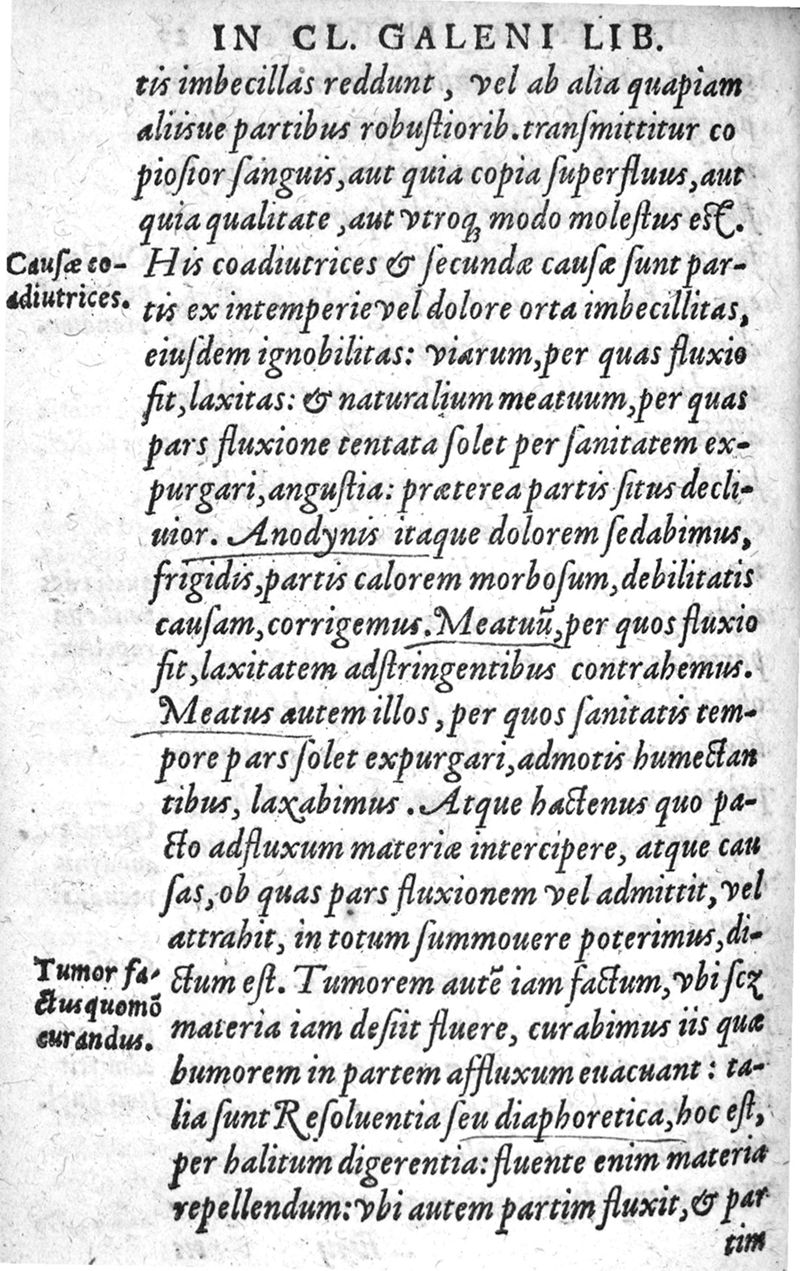 IN CL. GALENI LIB.
tis imbecillas reddunt, vel ab alia quapiam
aliisue partibus robuſtiorib. tranſmittitur co
pioſior ſanguis, aut quia copia ſuperfluus, aut
quia qualitate, aut vtroqꝫ modo moleſtus eſt.
Cauſæ co-
adiutrices.
His coadiutrices & ſecundæ cauſæ ſunt par-
tis ex intemperie vel dolore orta imbecillitas,
eiuſdem ignobilitas: viarum, per quas fluxio
fit, laxitas: & naturalium meatuum, per quas
pars fluxione tentata ſolet per ſanitatem ex-
purgari, anguſtia: præterea partis ſitus decli-
uior. Anodynis itaque dolorem ſedabimus,
frigidis, partis calorem morboſum, debilitatis
cauſam, corrigemus. Meatuũ, per quos fluxio
fit, laxitatem adſtringentibus contrahemus.
Meatus autem illos, per quos ſanitatis tem-
pore pars ſolet expurgari, admotis humectan
tibus, laxabimus. Atque hactenus quo pa-
cto adfluxum materiæ intercipere, atque cau
ſas, ob quas pars fluxionem vel admittit, vel
attrahit, in totum ſummouere poterimus, di-
Tumor fa-
ctus quomõ
curandus.
ctum eſt. Tumorem autẽ iam factum, vbi ſcꝫ
materia iam deſiit fluere, curabimus iis quæ
humorem in partem affluxum euacuant: ta-
lia ſunt Reſoluentia ſeu diaphoretica, hoc eſt,
per halitum digerentia: fluente enim materia
repellendum: vbi autem partim fluxit, & par
tim